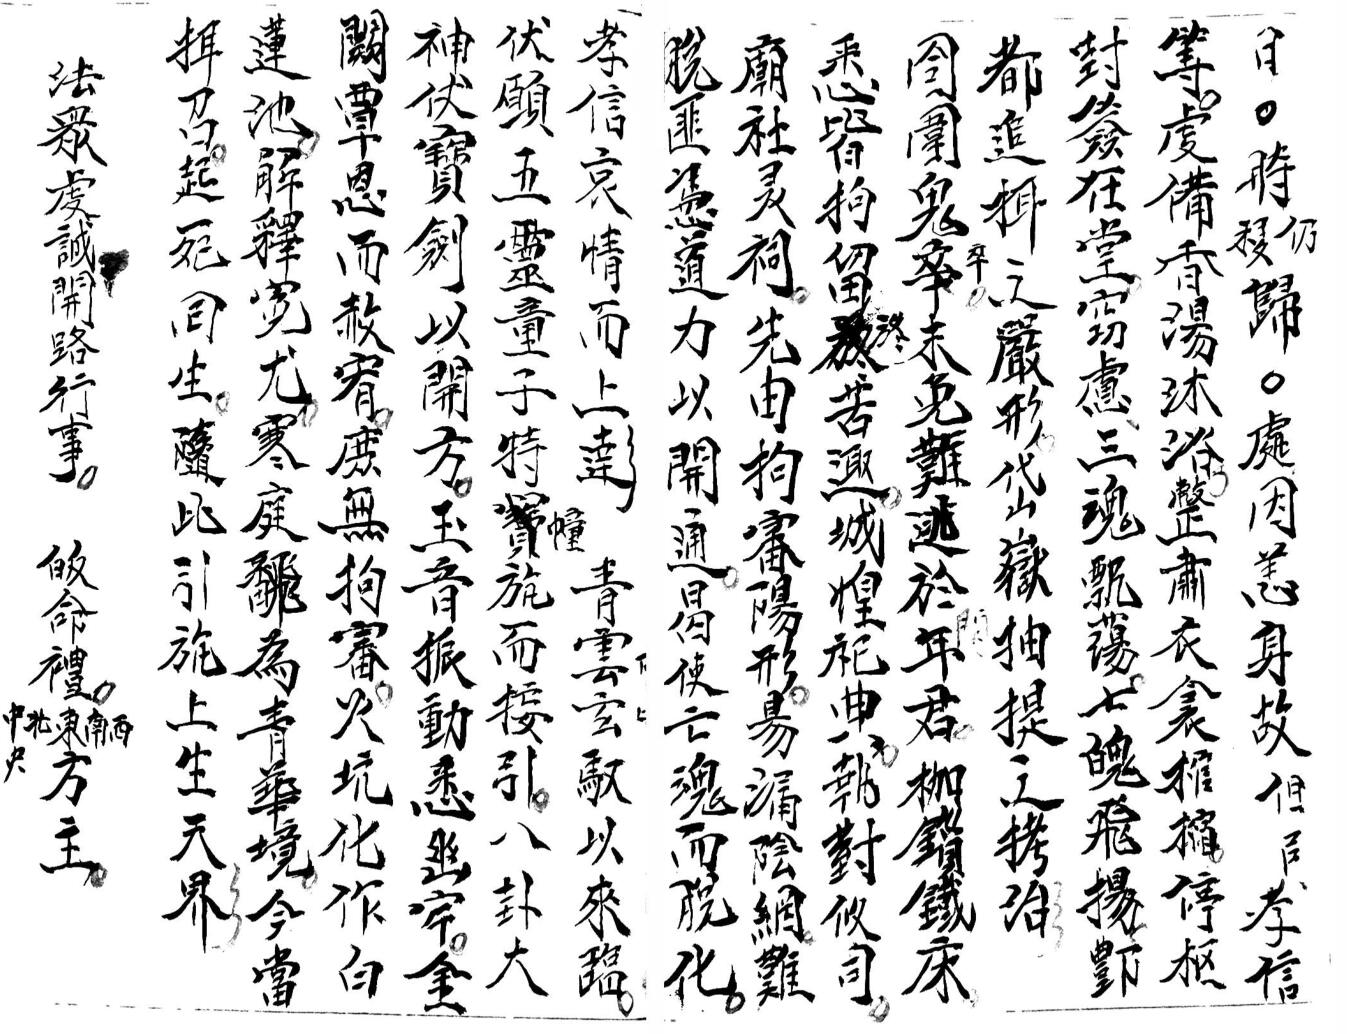 日。時仍移歸。處因恙身故但孝信
等。虔備香湯沐浴整肅衣衾棺槨。停柩
封發在堂窃慮三魂飄蕩。七魄飛揚酆
都追攝之嚴形。岱山嶽抽提之拷治
囹圄鬼卒未免難逃於年君。枷鎖鐵床
悉皆拘留。苦趣。城惶祀典。執對攸司。
廟社灵祠。先由拘審陽形。易漏陰網。難
脫匪憑道力以開通。曷使亡魂而脫化。
孝信哀情而上達 青雲玄馭以來臨。
伏願五靈童子特幢旛而接引。八卦大
神伏寶劍以開方。玉音振動悉幽牢。金
闕覃恩而赦宥。庶無拘審。火坑化作白
蓮池。解釋冤尤。寒庭翻為青華境。今當
攝召。起死回生。隨此引旛上生天界
法眾虔誠開路行事。 皈命禮。東南西北中央方主。